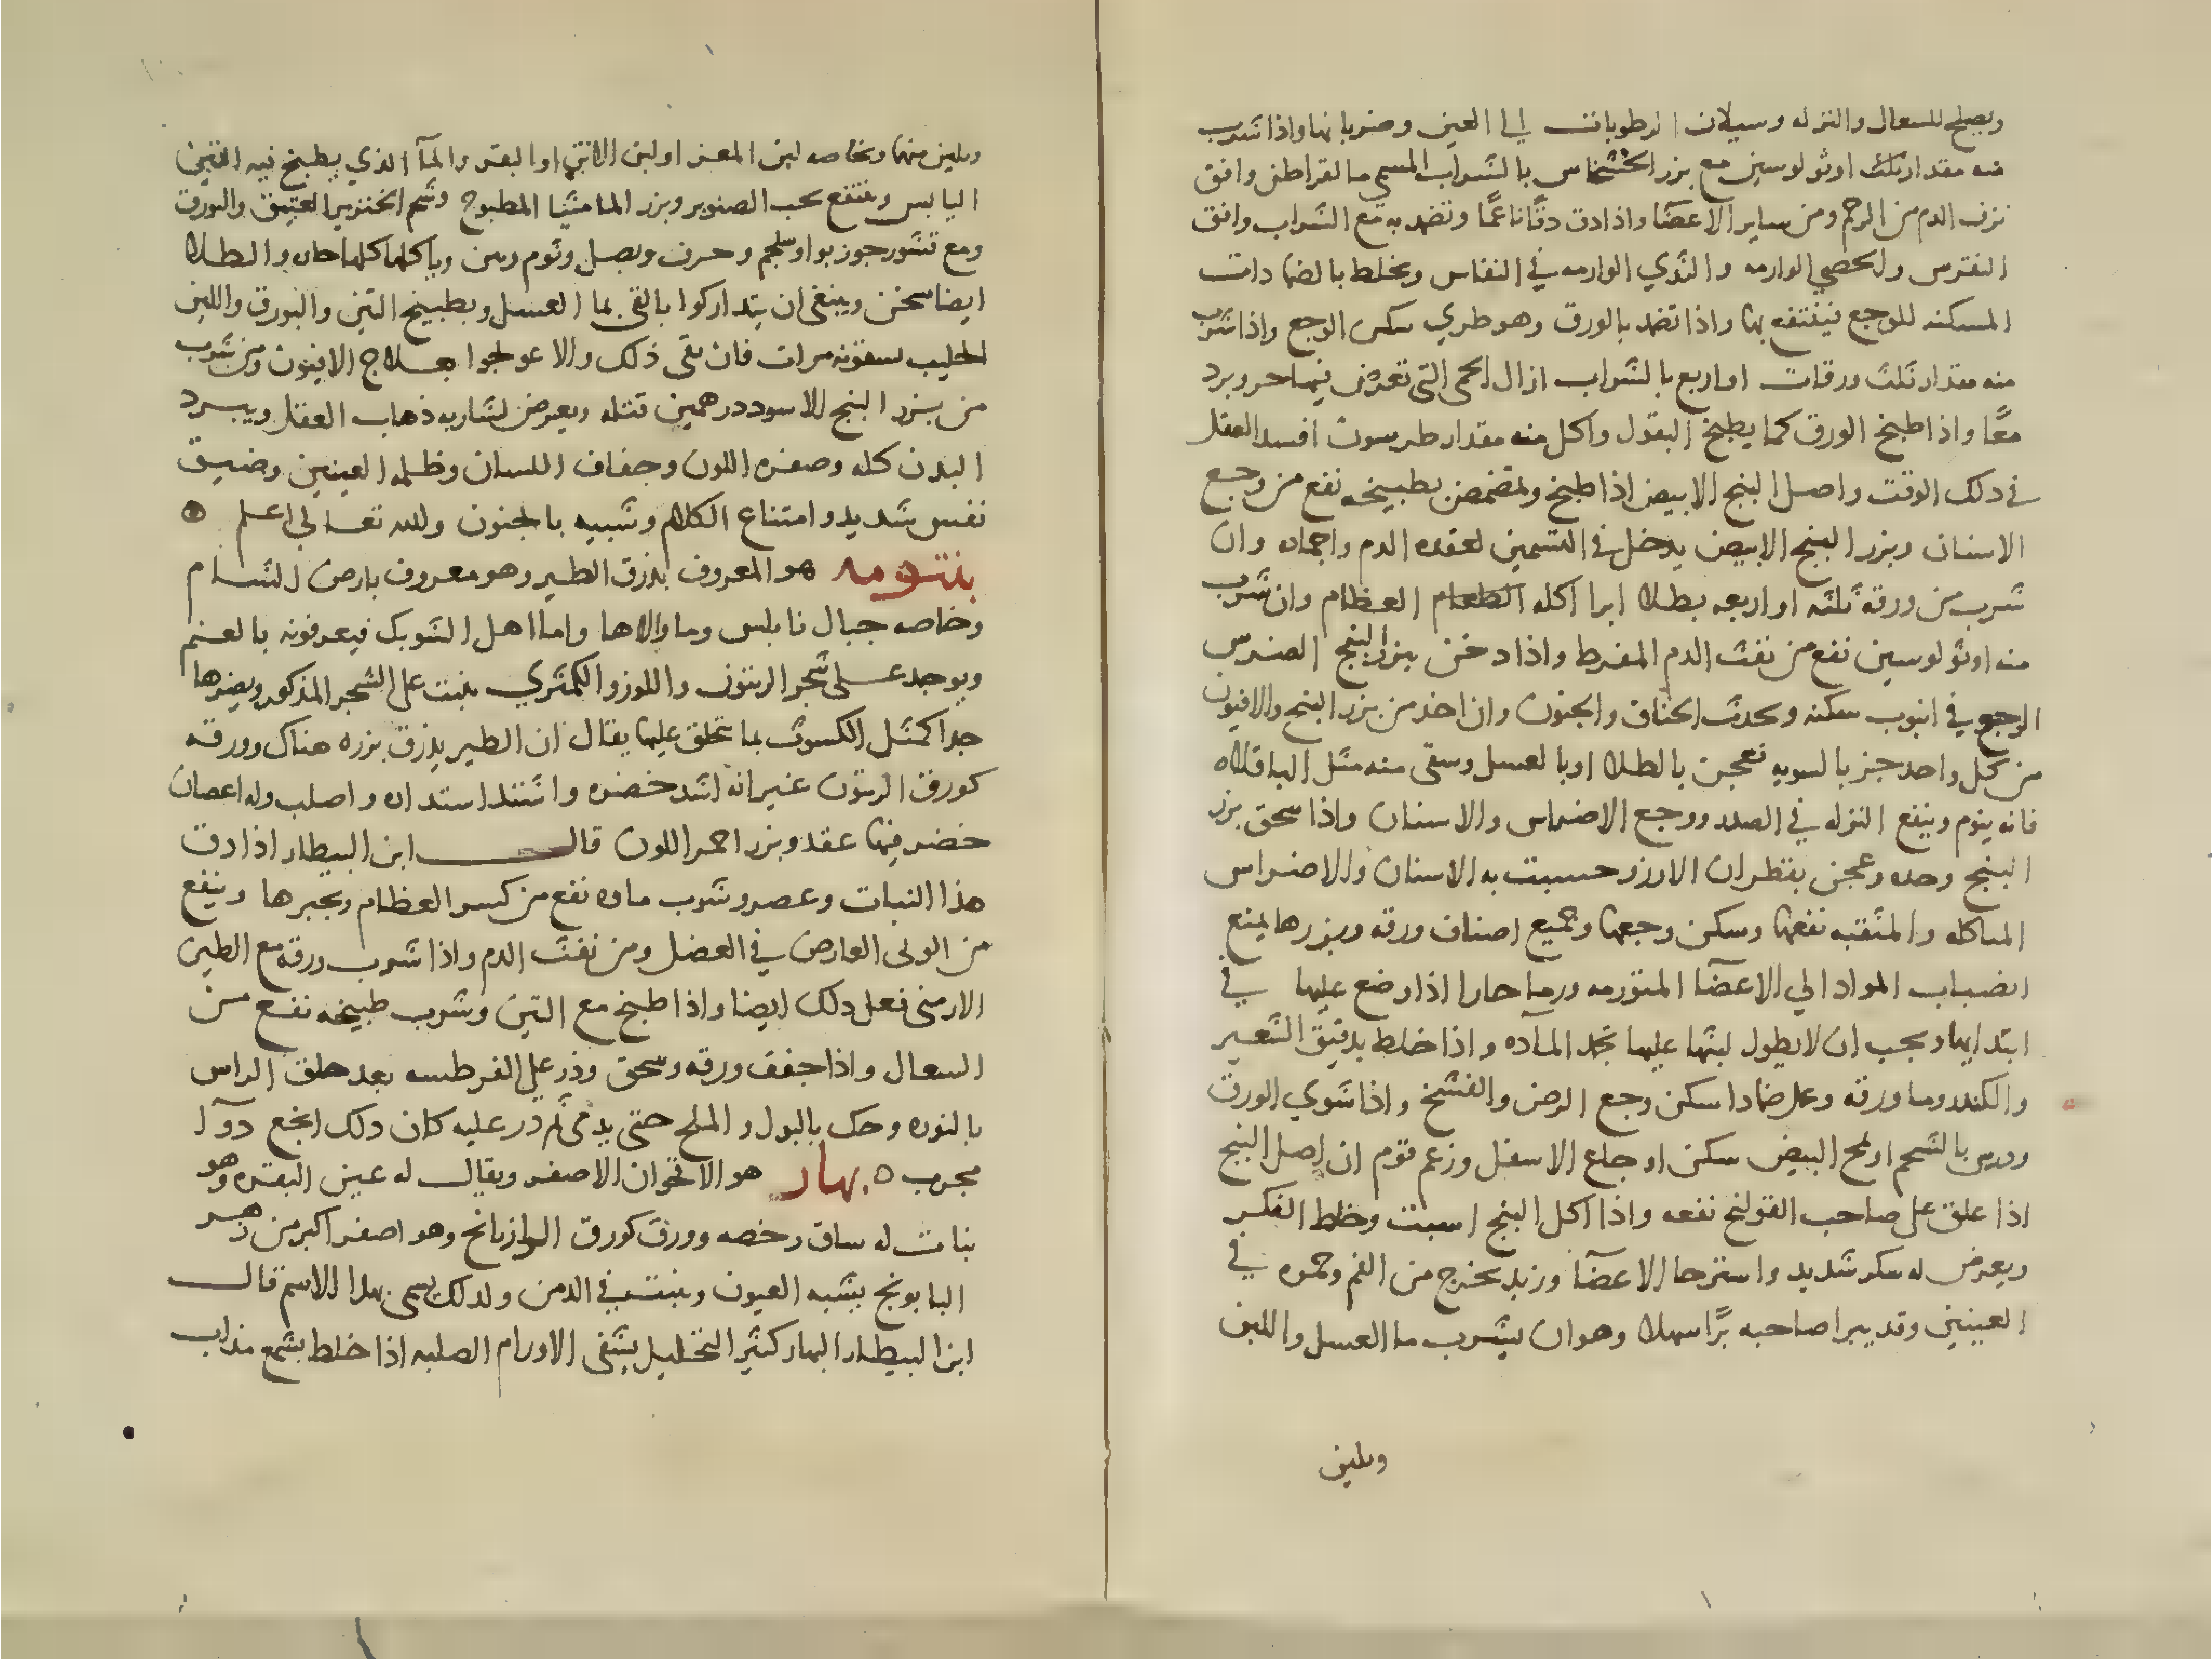 ويصلح للسعال والنزله وسيلان الرطوبات الي العين وضربانها واذا شرب
منه مقدار ثلث اوثولوسين مع بزر الخشخاش بالشراب المسمي ما القراطن وافق
نزف الدم من الرحم ومن ساير الاعضا واذا دق دقًا ناعمًا وتضمد به مع الشراب وافق
النقرس والخصي الوارمه والثدي الوارمه في النفاس ويخلط بالضمادات
المسكنه للوجع فينتفع بها واذا تضمد بالورق وهو طري سكن الوجع واذا شرب
منه مقدار ثلث ورقات او اربع بالشراب ازال الحمي التي تعرض فيها حر وبرد
معًا واذا طبخ الورق كما يطبخ البقول واكل منه مقدار طريسون افسد العقل
في دلك الوقت واصل البنج الابيض اذا طبخ وتمضمض بطبيخه نفع من وجع
الاسنان وبزر البنج الابيض يدخل في التسمين لعقده الدم واجماده وان
شرب من ورقه ثلثه او اربعه بطلا ابرا اكله الطعام العظام وان شرب
منه اوثولوسين نفع من نفث الدم المفرط واذا دخن ببزر البنج الضرس
الوجع في انبوب سكنه ويحدث الخناق والجنون وان اخذ من بزر البنج والافيون
من كل واحد جزبالسويه فعجن بالطلا او بالعسل وسقي منه مثل الباقلاه
فانه ينوم وينفع النزله في الصدر ووجع الاضراس والاسنان واذا سحق بزر
البنج وحده وعجن بقطران الارز وحسيت به الاسنان والاضراس
المتاكله والمثقبه نفعها وسكن وجعها وجميع اصناف ورقه وبزرها يمنع
انصباب المواد الي الاعضآ المتورمه ورما حارا اذا وضع عليها في
ابتدايها ويجب ان لا يطول لبثها عليها تجمد المآده واذا خلط بدقيق الشعير
والكندر وما ورقه وعمل ضمادا سكن وجع الرض والفسخ واذا شوي الورق
ودرس بالشحم او مح البيض سكن اوجاع الاسفل وزعم قوم ان اصل البنج
اذا علق على صاحب القولنج نفعه واذا اكل البنج اسبت وخلط الفكر
ويعرض له سكر شديد واسترخا الاعضآ وزبد يخرج من الفم وحمره في
العينين وقد يبرا صاحبه برًا سهلا وهو ان يشرب ما العسل واللبن
ويلين
ويلين منها وبخاصه لبن المعز او لبن الاتن او البقر والمآ الذي يطبخ فيه التين
اليابس وينتفع بحب الصنوبر وبزر الماميثا المطبوخ وشحم الخنزير العتيق والبورق
ومع قشور جوز بوا وسلجم وحرف وبصل وثوم وياكلها كلها حاره والطلا
ايضا سخن وينبغي ان يتداركوا بالقي بما العسل وبطبيخ التين والبورق واللبن
الحليب يسقونه مرات فان بقي ذلك والا عولجوا بعلاج الافيون ومن شرب
من بزر البنج الاسود درهمين قتله ويعرض لشاربه ذهاب العقل ويبرد
البدن كله وصفره اللون وجفاف اللسان وظلمه العينين وضيق
نفس شديد وامتناع الكلام وشبيه بالجنون والله تعالى اعلم
بنتومه هو المعروف بذرق الطير وهو معروف بارض الشام
وخاصه جبال نابلس وما والاها واما اهل الشوبك فيعرفونه بالعنم
ويوجد على شجر الزيتون واللوز والكمثري ينبت على الشجر المذكور ويضرها
جدا كمثل الكسوث بما يتخلق عليها يقال ان الطير يذرق بزره هناك وورقه
كورق الزيتون غير انه اشد خضره واشتد استداره واصلب وله اعصان
خضر فيها عقد وبزر احمر اللون قال ابن البيطار اذا دق
هذا النبات وعصر وشرب ماوه نفع من كسر العظام ويجبرها وينفع
من الوثي العارض في العضل ومن نفث الدم واذا شرب ورقه مع الطين
الارمني فعل دلك ايضا واذا طبخ مع التين وشرب طبيخه نفع من
السعال واذا جفف ورقه وسحق وذر على القرطسه بعد حلق الراس
بالنوره وحك بالبول والملح حتى يدمى ثم در عليه كان دلك انجع دوآ
مجرب ه بهار هو الاقحوان الاصفر ويقال له عين البقره وهو
نبات له ساق رخصه وورق كورق الرازيانج وهو اصفر اكبر من زهر
البابونج يشبه العيون وينبت في الدمن ولدلك يسمى بهدا الاسم قال
ابن البيطار البهار كثير التحليل يشفي الاورام الصلبه اذا خلط بشمع مذاب